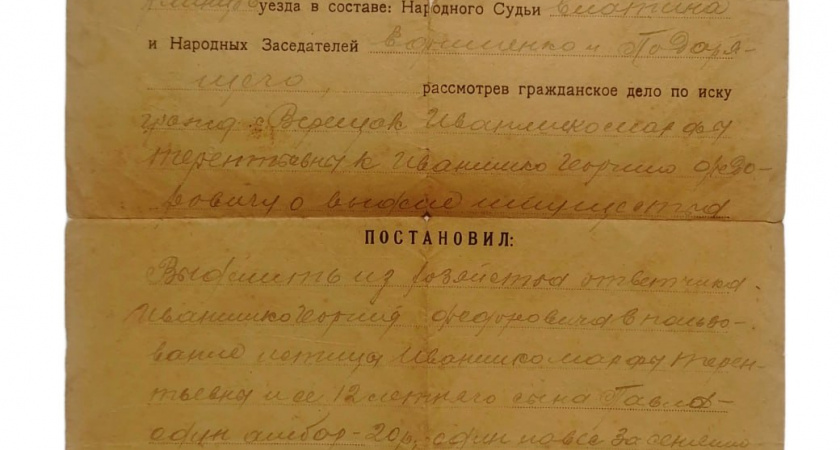 уезда в составе: Народного Судьи
и Народных Заседателей
рассмотрев гражданское дело по иску
гражд. Иванишко Марфы
Терентьевны к Иванишко Георгию Федо-
ровичу о выделе имущества
ПОСТАНОВИЛ:
Выделить из хозяйства ответчика
Иванишко Георгия Федоровича в пользо-
вание истицы Иванишко Марфы Терен-
тьевны и ее 12 летнего сына Павла
один амбар - 20 р., один